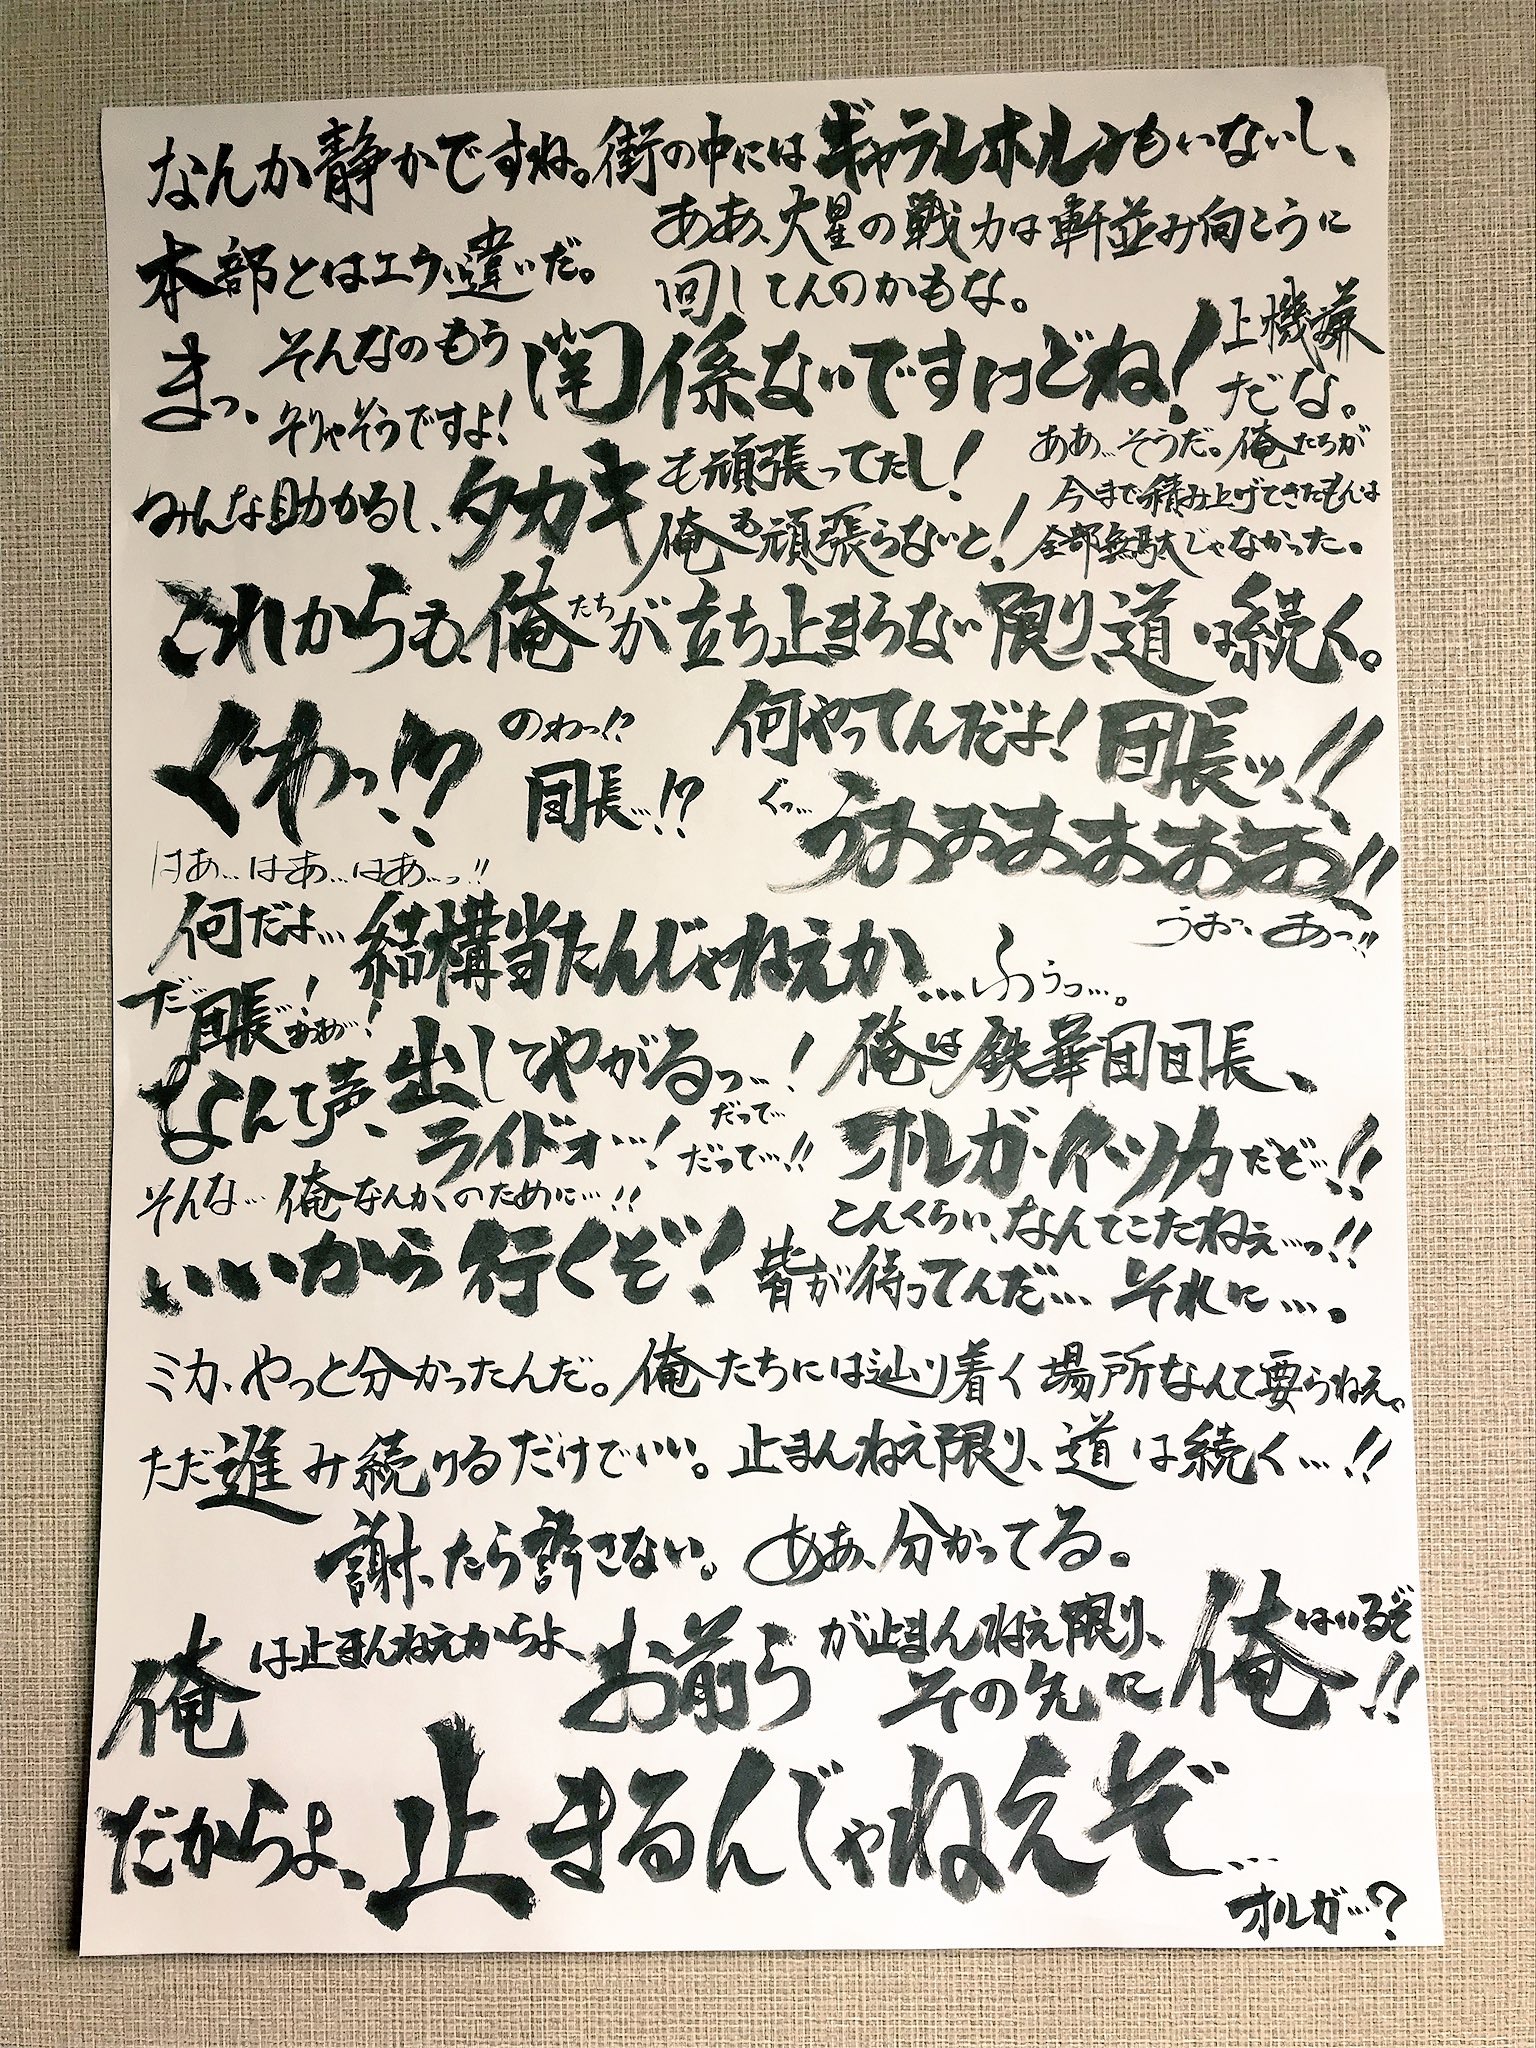 なんか静かですね。街の中にはギャラルホルンもいないし、
本部とはエラい違いだ。
ああ、火星の戦力は軒並み向こうに
回してんのかもな。
まっ、そんなのもう関係ないですけどね!
上機嫌
だな。
そりゃそうですよ!
みんな助かるし、タカキも頑張ってたし!
俺も頑張らないと!
ああ…そうだ。俺たちが
今まで積み上げてきたもんは
全部無駄じゃなかった。
これからも、俺たちが立ち止まらない限り、道は続く。
ぐわっ!?
のわっ!?
団長…!?
何やってんだよ!団長ッ!!
ぐっ…
うおおおおおおお!!
はあ…はあ…はあ…っ!!
うおっ、あっ!!
何だよ…結構当たんじゃねえか…ふぅっ…。
だ…団長…!ああ…!
なんて声、出してやがるっ…!
ライドォ…!
だって…
だって…!!
俺は鉄華団団長、
オルガ・イツカだぞ…!!
そんな…俺なんかのために…!!
こんくらい、なんてこたねえ…っ!!
いいから行くぞ!
皆が待ってんだ…それに…。
ミカ、やっと分かったんだ。俺たちには辿り着く場所なんて要らねえ。
ただ進み続けるだけでいい。止まんねえ限り、道は続く…!!
謝ったら許さない。ああ、分かってる。
俺は止まんねえからよ、お前らが止まんねえ限り、
その先に俺はいるぞ!!
だからよ、止まるんじゃねえぞ…
オルガ…?